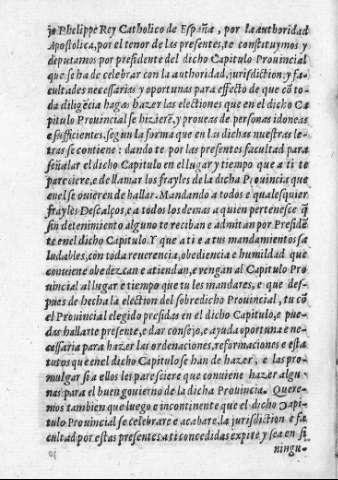 jo Phelippe Rey Catholico de España, por la authoridad
Apostolica, por el tenor de las presentes, te constituymos y
deputamos por presidente del dicho Capitulo Prouincial
que se ha de celebrar con la authoridad, jurisdiction, y fa-
cultades necessarias y oportunas para effecto de que cō to-
da diligēcia hagas hazer las electiones que en el dicho Ca
pitulo Prouincial se hizierē, y proueas de personas idoneas
e sufficientes, segun la forma que en las dichas nuestras le-
tras se contiene: dando te por las presentes facultad para
señalar el dicho Capitulo en el lugar y tiempo que a ti te
pareciere, e de llamar los frayles de la dicha Prouincia que
en el se ouieren de hallar. Mandando a todos e qualesquier
frayles Descalços, e a todos los demas a quien pertenesce q̄
sin detenimiento alguno te reciban e admitan por Presidē
te en el dicho Capitulo. Y que a ti e a tus mandamientos sa
ludables, con toda reuerencia, obediencia e humildad que
conuiene obedezcan e atiendan, e vengan al Capitulo Pro
uincial al lugar e tiempo que tu les mandares, e que des-
pues de hecha la eléction del sobredicho Prouincial, tu cō
el Prouincial elegido presidas en el dicho Capitulo, e pue-
das hallarte presente, e dar consejo, e ayuda oportuna e ne-
cessaria para hazer las ordenaciones, reformaciones e esta
tutos que en el dicho Capitulo se han de hazer, e las pro-
mulgar si a ellos les paresciere que conuiene hazer algu-
nas para el buen gouierno de la dicha Prouincia. Quere-
mos tambien que luego e incontinente que el dicho Capi-
tulo Prouincial se celebrare e acabare, la jurisdiction e fa
cultad por estas presentes a ti concedidas expire y sea en si
ningu-